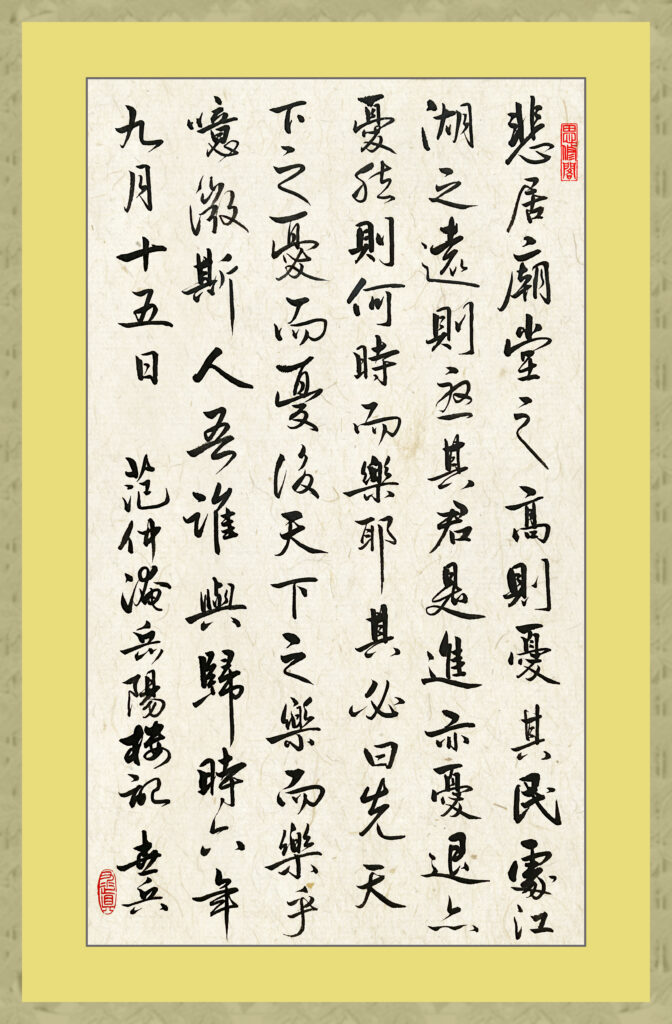 悲居廟堂之高則憂其民處江
湖之遠則憂其君是進亦憂退亦
憂然則何時而樂耶其必曰先天
下之憂而憂後天下之樂而樂乎
噫微斯人吾誰與歸時六年
九月十五日 范仲淹岳陽樓記 世兵